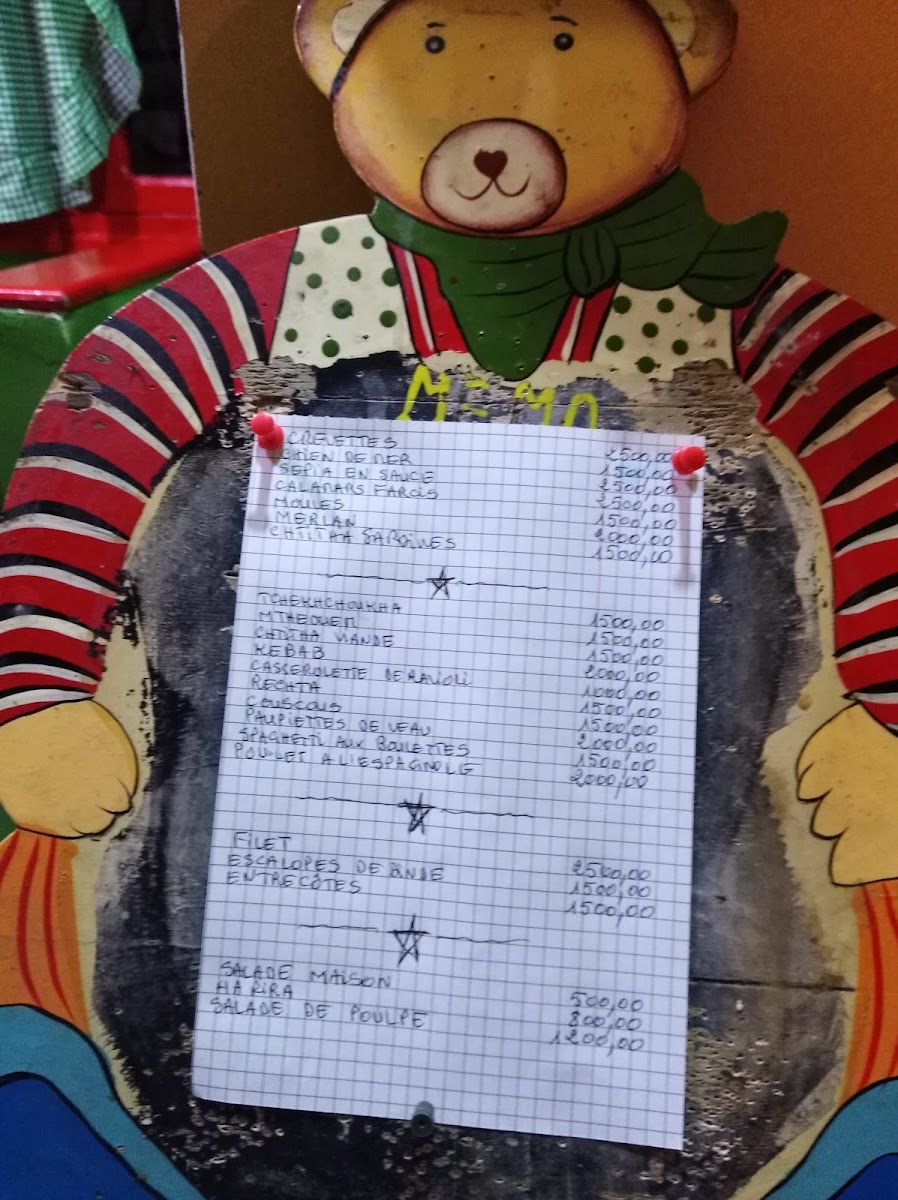 MEMO
CREVETTES 2500,00
CHIEN DE MER 1500,00
SEPIA EN SAUCE 2500,00
CALAMARS FARCIS 2500,00
MOULES 1500,00
MERLAN 2000,00
CHTITHA SARDINES 1500,00
TCHEKHCHOUKHA 1500,00
MTHEOUEM 1500,00
CHTITHA VIANDE 1500,00
KEBAB 2000,00
CASSEROLETTE DE RAVIOLI 1000,00
RECHTA 1500,00
COUSCOUS 1500,00
PAUPIETTES DE VEAU 2000,00
SPAGHETTI AUX BOULETTES 1500,00
POULET A L'ESPAGNOLE 2000,00
FILET 2500,00
ESCALOPES DE DINDE 1500,00
ENTRECÔTES 1500,00
SALADE MAISON 500,00
HARIRA 800,00
SALADE DE POULPE 1200,00